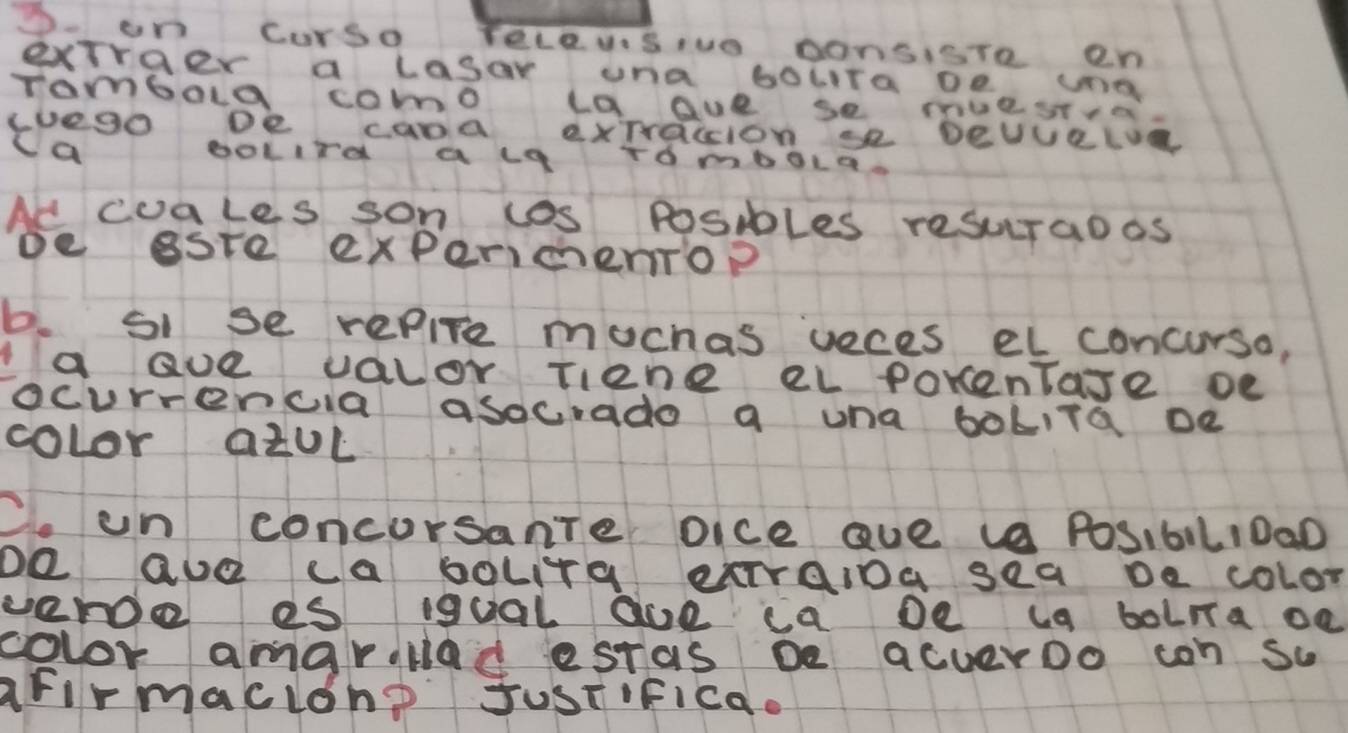 3. un curso televisivo consiste en
extraer a lasar una bolita de una
Tombola como la que se muestra.
luego De cada extraccion se Devuelve
la bolita a la tombola.
A¿ cuales son los Posibles resultados
De este experimento?
b. si se repite muchas veces el concurso,
¿a que valor tiene el porcentaje de
ocurrencia asociado a una bolita de
color azul
C. un concursante Dice que la Posibilidad
De que la bolita extraida sea De color
verde es igual que la De la bolita de
color amarilla¿ estas De acuerdo con su
afirmación? Justifica.